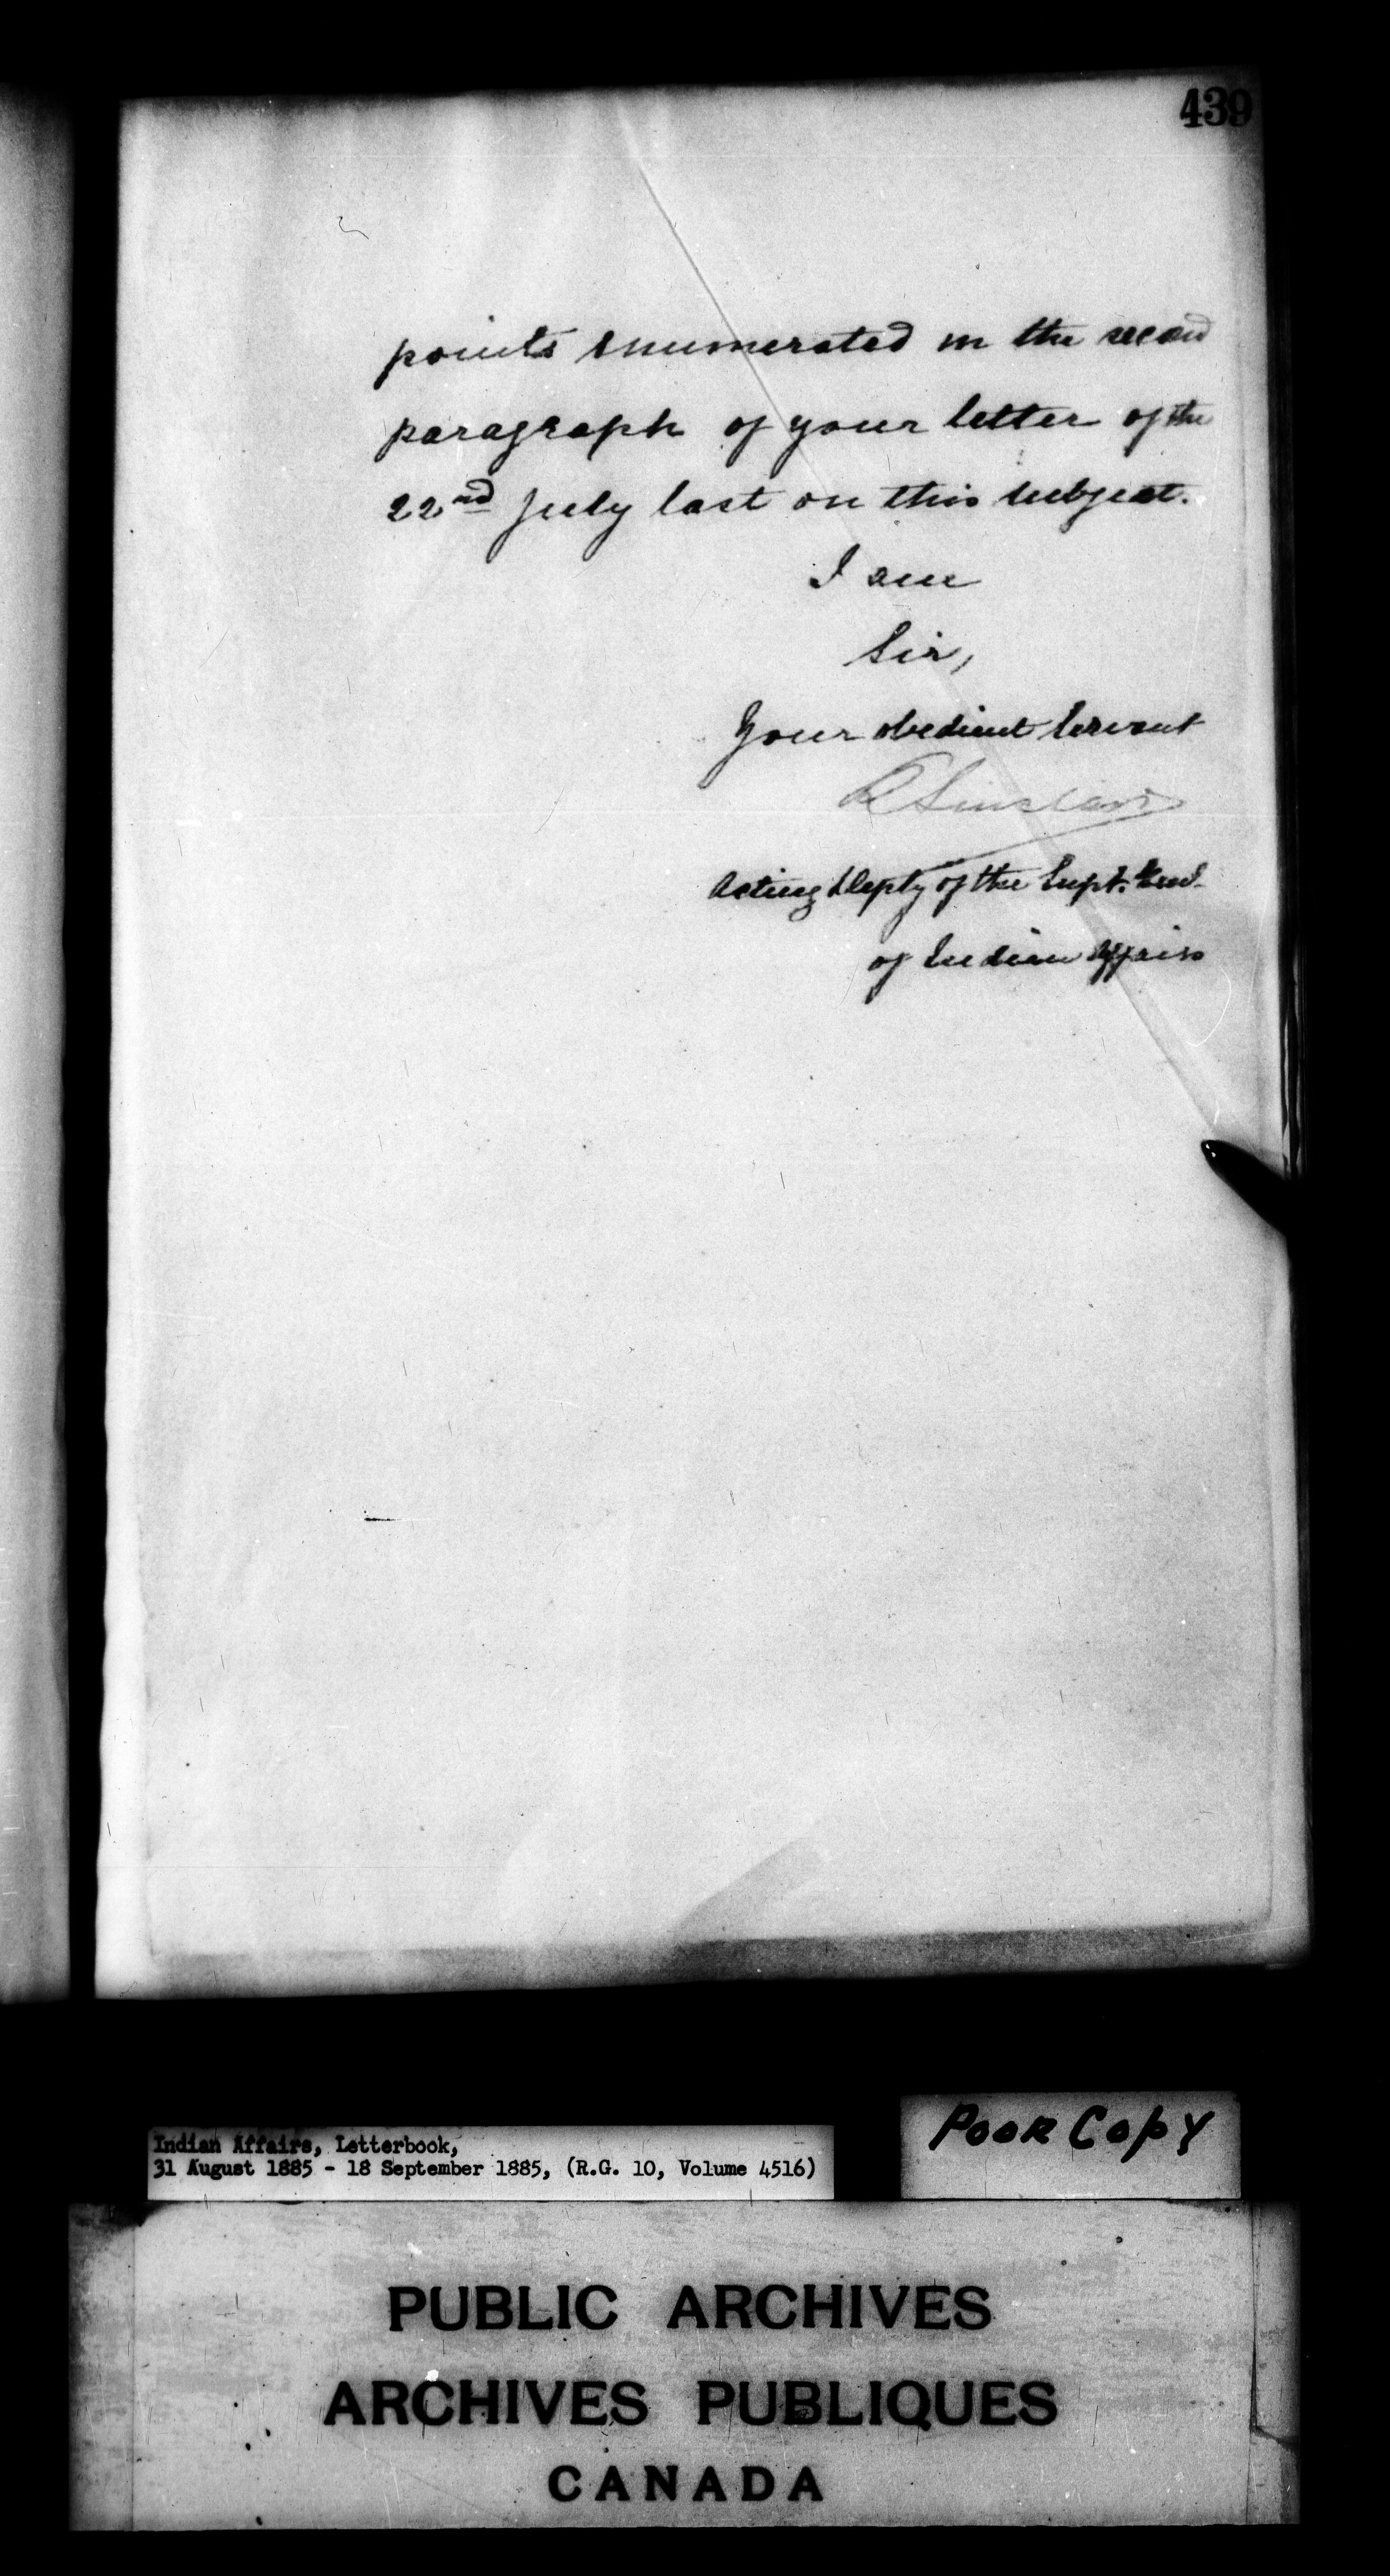 439
points enumerated in the second
paragraph of your letter of the
22nd July last on this subject.
I am
Sir,
Your obedient Servant
R Sinclair
Acting Depty of the Supt. Genl.
of Indian Affairs
Indian Affairs, Letterbook,
31 August 1885 - 18 September 1885, (R.G. 10, Volume 4516)
Poor Copy
PUBLIC ARCHIVES
ARCHIVES PUBLIQUES
CANADA